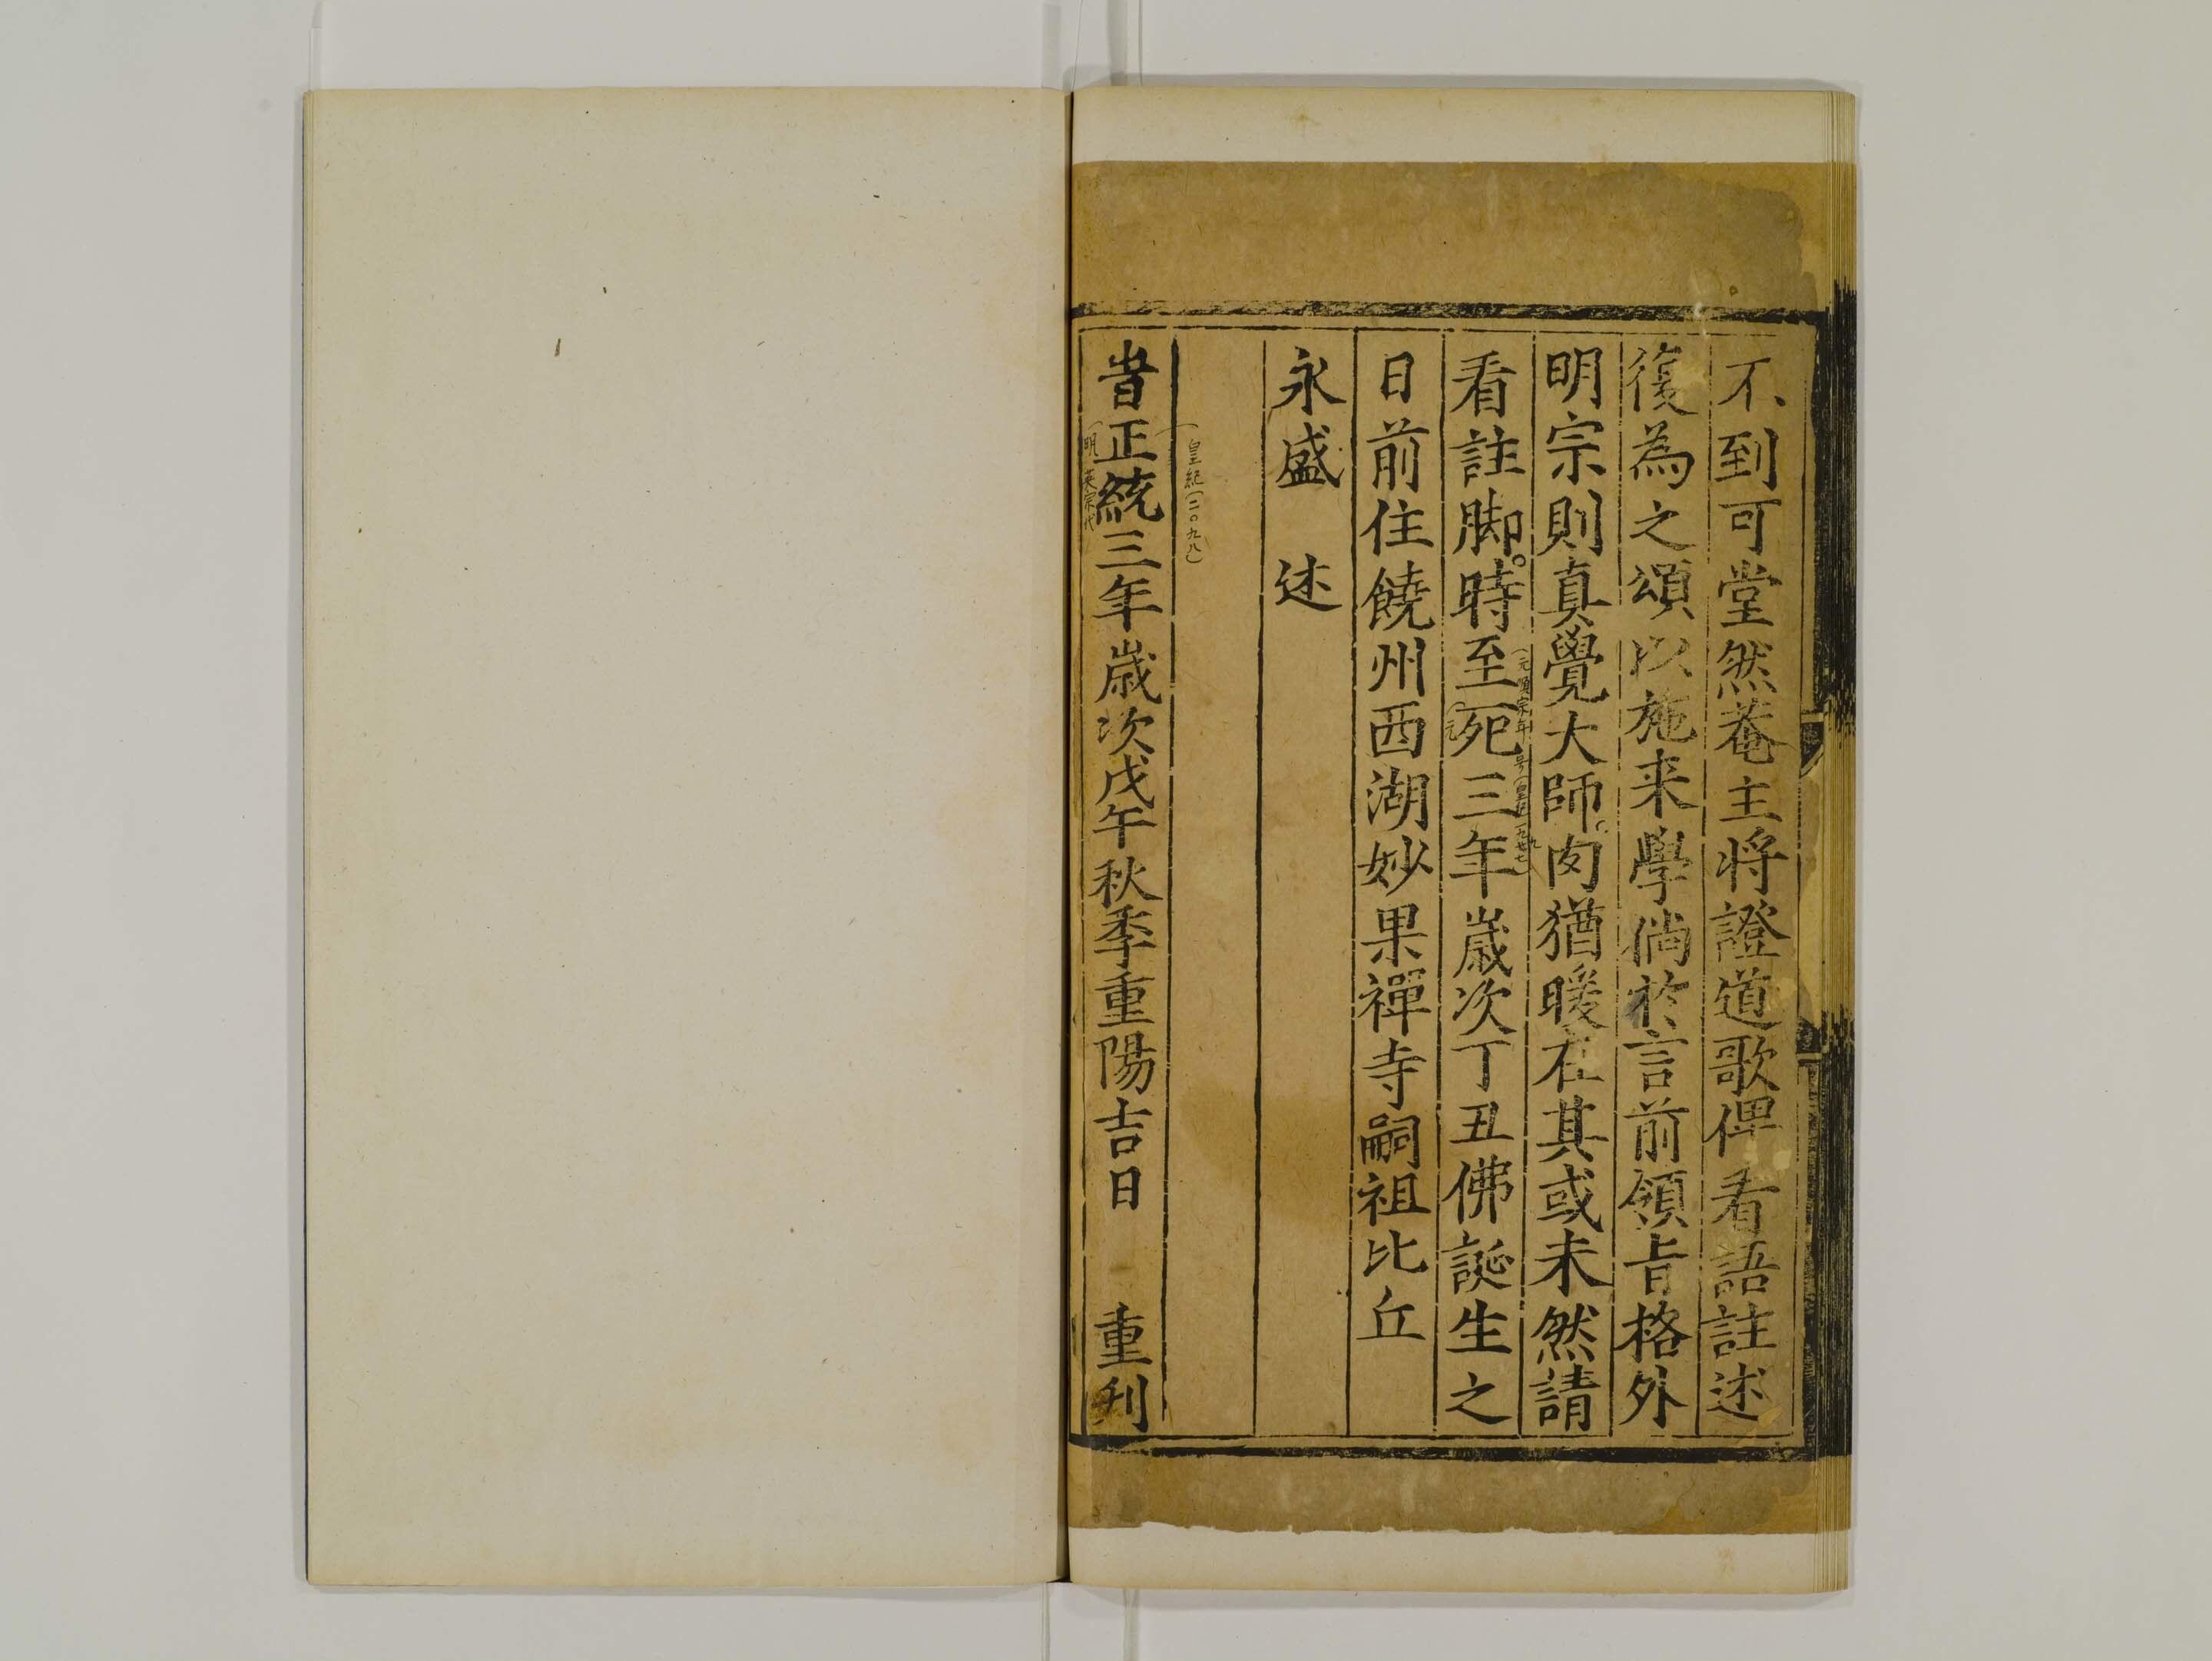 不到可堂然菴主將證道歌俾看語註述
復為之頌以施来學倘於言前領旨格外
明宗則真覺大師肉猶暖在其或未然請
看註脚時至𠒋三年歲次丁丑佛誕生之
日前住饒州西湖妙果禪寺嗣祖比丘
永盛 述
皇紀(二〇九八)
旹正統三年歲次戊午秋季重陽吉日 重刊
明英宗代